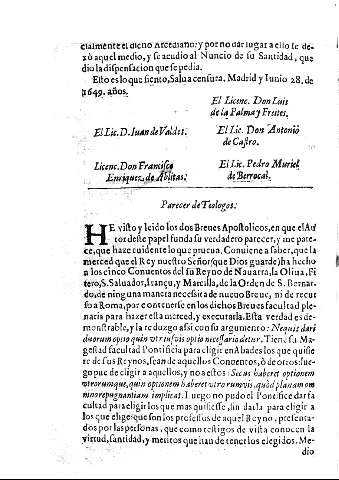 cialmente el dicho Arcediano; y por no dar lugar a ello se de-
xò aquel medio, y se acudio al Nuncio de su Santidad, que
dio la dispensacion que se pedia.
Esto es lo que siento, Salua censura. Madrid y Iunio 28. de
1649. años.
El Licenc. Don Luis
de la Palma y Freites.
El Lic. D. Iuan de Valdes.
El Lic. Don Antonio
de Castro.
Licenc. Don Francisco
Enriquez de Ablitas.
El Lic. Pedro Muriel
de Berrocal.
Parecer de Teologos.
HE visto y leido los dos Breues Apostolicos, en que el Au-
tor deste papel funda su verdadero parecer, y me pare-
ce, que haze euidente lo que prueua. Conuiene a saber, que la
merced que el Rey nuestro Señor (que Dios guarde) ha hecho
en los cinco Conuentos del su Reyno de Nauarra, la Oliua, Fi-
tero, S. Saluador, Irançu, y Marcilla, de la Orden de S. Bernar-
do, de ninguna maneta necessita de nueuo Breue, ni de recur-
so a Roma, por contenerse en los dichos Breues facultad ple-
naria para hazer esta merced, y executarla. Esta verdad es de-
monstrable, y la reduzgo assi con su argumento: Nequit dari
duorum optio quin vtriusvis optio necessario detur. Tiene su Ma-
gestad facultad Pontificia para eligir en Abades los que quisie-
re de sus Reynos, sean de aquellos Conuentos, ò de otros: lue-
go puede eligir a aquellos, y no a estos: Secus haberet optionem
vtrorumque, quin optionem haberet vtrorumvis, quòd planam om
nino repugnantiam implicat. Luego no pudo el Pontifice dar fa-
cultad para eligir los que mas quisiesse, sin darla para eligir a
los que elige: que son los professos de aquel Reyno, presenta-
dos por las personas, que como testigos de vista conocen la
virtud, santidad, y meritos que han de tener los elegidos. Me-
dio